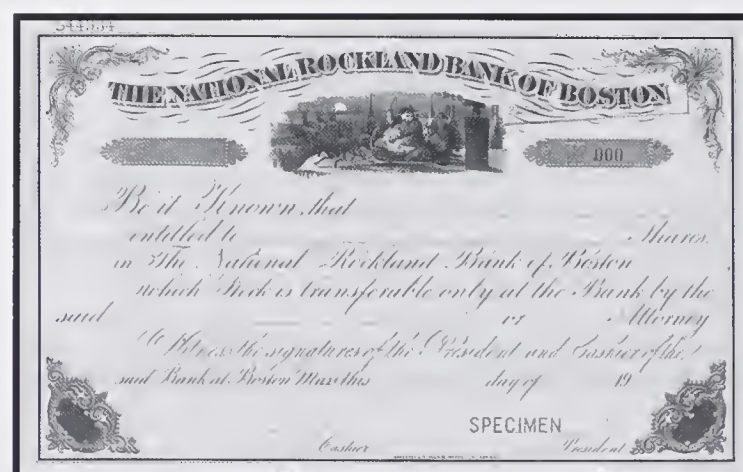 344334
THE NATIONAL ROCKLAND BANK OF BOSTON
000
Be it Known that
entitled to Shares
in The National Rockland Bank of Boston
which Stock is transferable only at the Bank by the
said or Attorney
Witness the signatures of the President and Cashier of the
said Bank at Boston Mass this day of 19
SPECIMEN
Cashier President